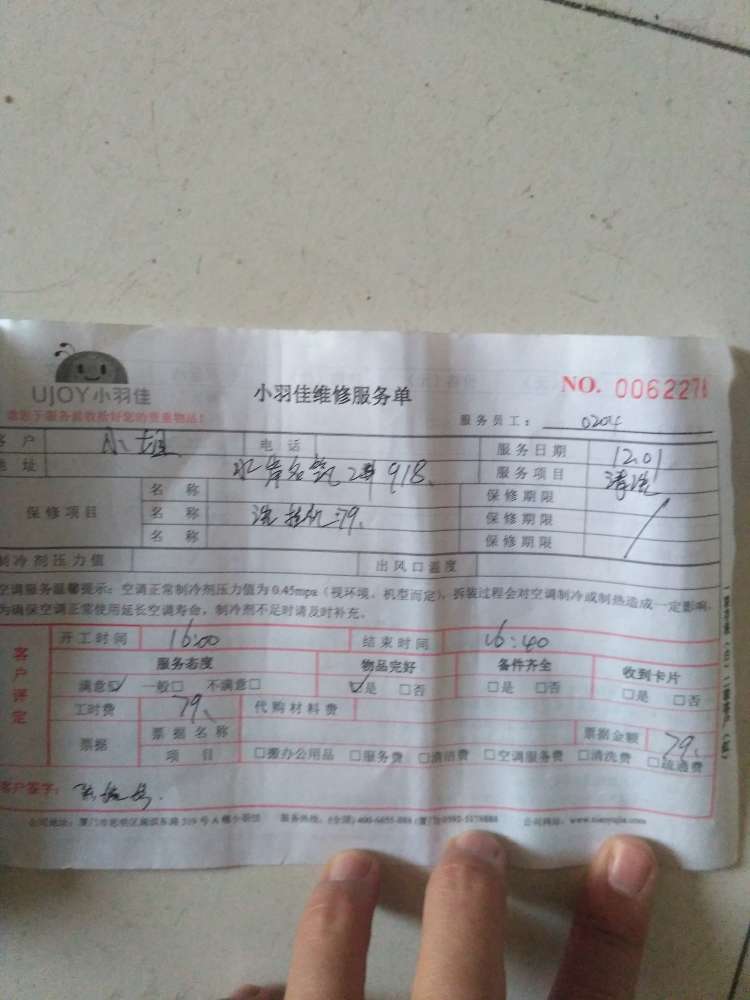 UJOY小羽佳
小羽佳维修服务单
NO. 0062278
请您下服务前收拾好您的贵重物品!
服务员工: 0204
客户 小姐 电话 服务日期 12.01
地址 918 服务项目 清洗
名称 保修期限
保修项目 名称 洗挂机 79 保修期限
名称 保修期限
制冷剂压力值 出风口温度
空调服务温馨提示: 空调正常制冷剂压力值为0.45mpa(视环境、机型而定), 拆装过程会对空调制冷或制热造成一定影响,
为确保空调正常使用延长空调寿命, 制冷剂不足时请及时补充。
客户评定
开工时间 16:00 结束时间 16:40
服务态度 物品完好 备件齐全 收到卡片
满意☑ 一般□ 不满意□ ☑是 □否 □是 □否 □是 □否
工时费 79 代购材料费
票据 票据名称 票据金额 79
项目 □搬办公用品 □服务费 □清洁费 □空调服务费 □清洗费 □疏通费
客户签字:
公司地址: 厦门市 号A楼小羽佳 服务热线: (全国) 400-6655-888 (厦门) 0592-5178888 公司网站: www.xiaoyujia.com